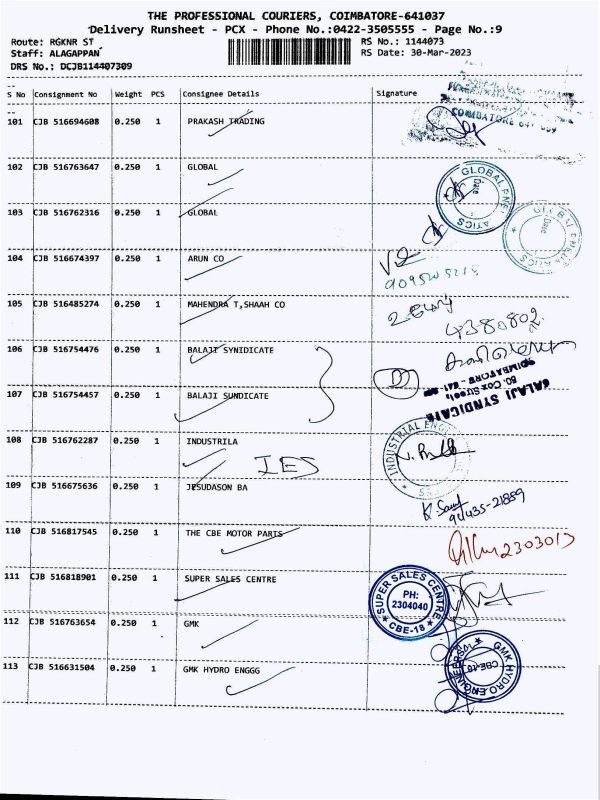 THE PROFESSIONAL COURIERS, COIMBATORE-641037
Delivery Runsheet - PCX - Phone No.:0422-3505555 - Page No.:9
Route: RGKNR ST RS No.: 1144073
Staff: ALAGAPPAN RS Date: 30-Mar-2023
DRS No.: DCJB114407309
S No Consignment No Weight PCS Consignee Details Signature
101 CJB 516694608 0.250 1 PRAKASH TRADING
COIMBATORE 641 009
102 CJB 516763647 0.250 1 GLOBAL
GLOBAL PNE
Date
ATICS
103 CJB 516762316 0.250 1 GLOBAL
GLOBAL
Date
ATICS
104 CJB 516674397 0.250 1 ARUN CO
105 CJB 516485274 0.250 1 MAHENDRA T,SHAAH CO
4380802
106 CJB 516754476 0.250 1 BALAJI SYNIDICATE
107 CJB 516754457 0.250 1 BALAJI SUNDICATE
BALAJI SYNDICATE
80, Cox Street,
COIMBATORE - 641
108 CJB 516762287 0.250 1 INDUSTRILA
IES
INDUSTRIAL ENG
109 CJB 516675636 0.250 1 JESUDASON BA
94435-21859
110 CJB 516817545 0.250 1 THE CBE MOTOR PARTS
2303013
111 CJB 516818901 0.250 1 SUPER SALES CENTRE
SUPER SALES CENTRE
PH:
2304040
CBE-18
112 CJB 516763654 0.250 1 GMK
113 CJB 516631504 0.250 1 GMK HYDRO ENGGG
GMK HYDRO ENGINEERS
CBE-18